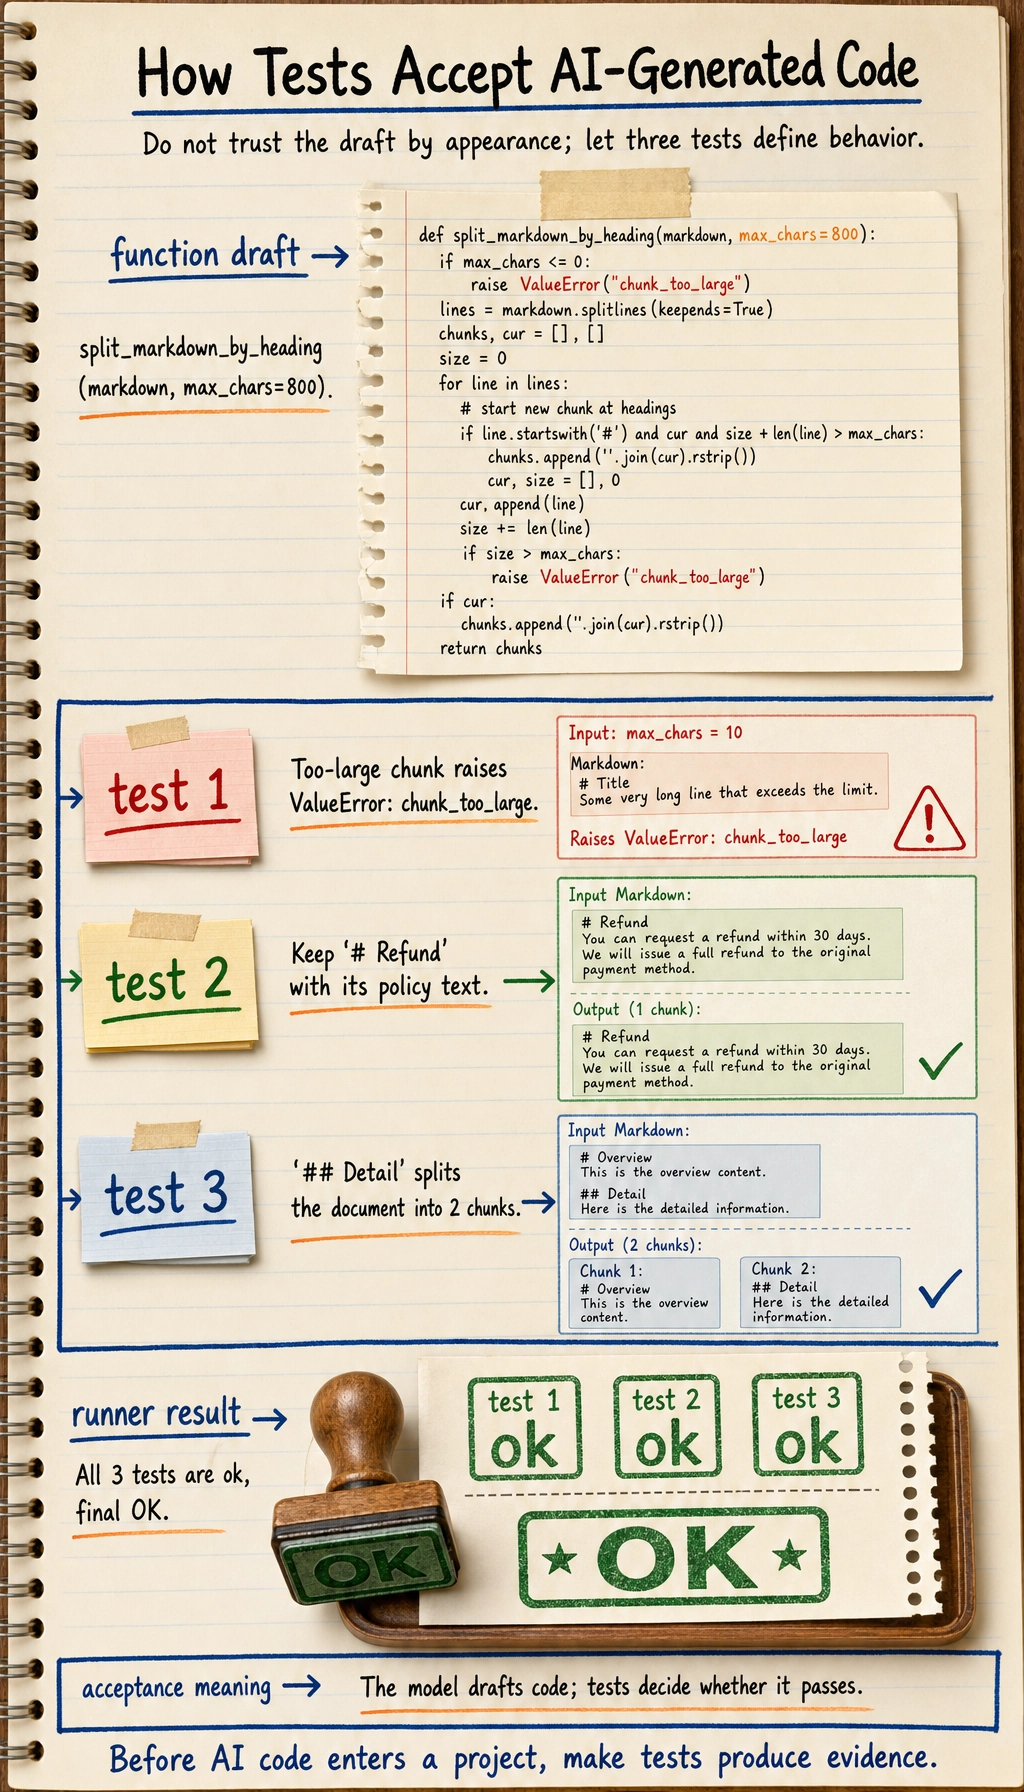 How Tests Accept AI-Generated Code
Do not trust the draft by appearance; let three tests define behavior.
function draft →
split_markdown_by_heading
(markdown, max_chars=800).
def split_markdown_by_heading(markdown, max_chars=800):
if max_chars <= 0:
raise ValueError("chunk_too_large")
lines = markdown.splitlines(keepends=True)
chunks, cur = [], []
size = 0
for line in lines:
# start new chunk at headings
if line.startswith('#') and cur and size + len(line) > max_chars:
chunks.append(''.join(cur).rstrip())
cur, size = [], 0
cur, append(line)
size += len(line)
if size > max_chars:
raise ValueError("chunk_too_large")
if cur:
chunks.append(".join(cur).rstrip())
return chunks
test 1
Too-large chunk raises
ValueError: chunk_too_large.
Input: max_chars = 10
Markdown:
# Title
Some very long line that exceeds the limit.
Raises ValueError: chunk_too_large
!
test 2
Keep '# Refund'
with its policy text. →
Input Markdown:
# Refund
You can request a refund within 30 days.
We will issue a full refund to the original
payment method.
Output (1 chunk):
# Refund
You can request a refund within 30 days.
We will issue a full refund to the original
payment method.
test 3
'## Detail' splits
the document into 2 chunks. →
Input Markdown:
# Overview
This is the overview content.
## Detail
Here is the detailed information.
Output (2 chunks):
Chunk 1:
# Overview
This is the overview
content.
Chunk 2:
## Detail
Here is the detailed
information.
runner result →
All 3 tests are ok,
final OK.
test 1
ok
test 2
ok
test 3
ok
OK
★ OK ★
acceptance meaning → The model drafts code; tests decide whether it passes.
Before AI code enters a project, make tests produce evidence.